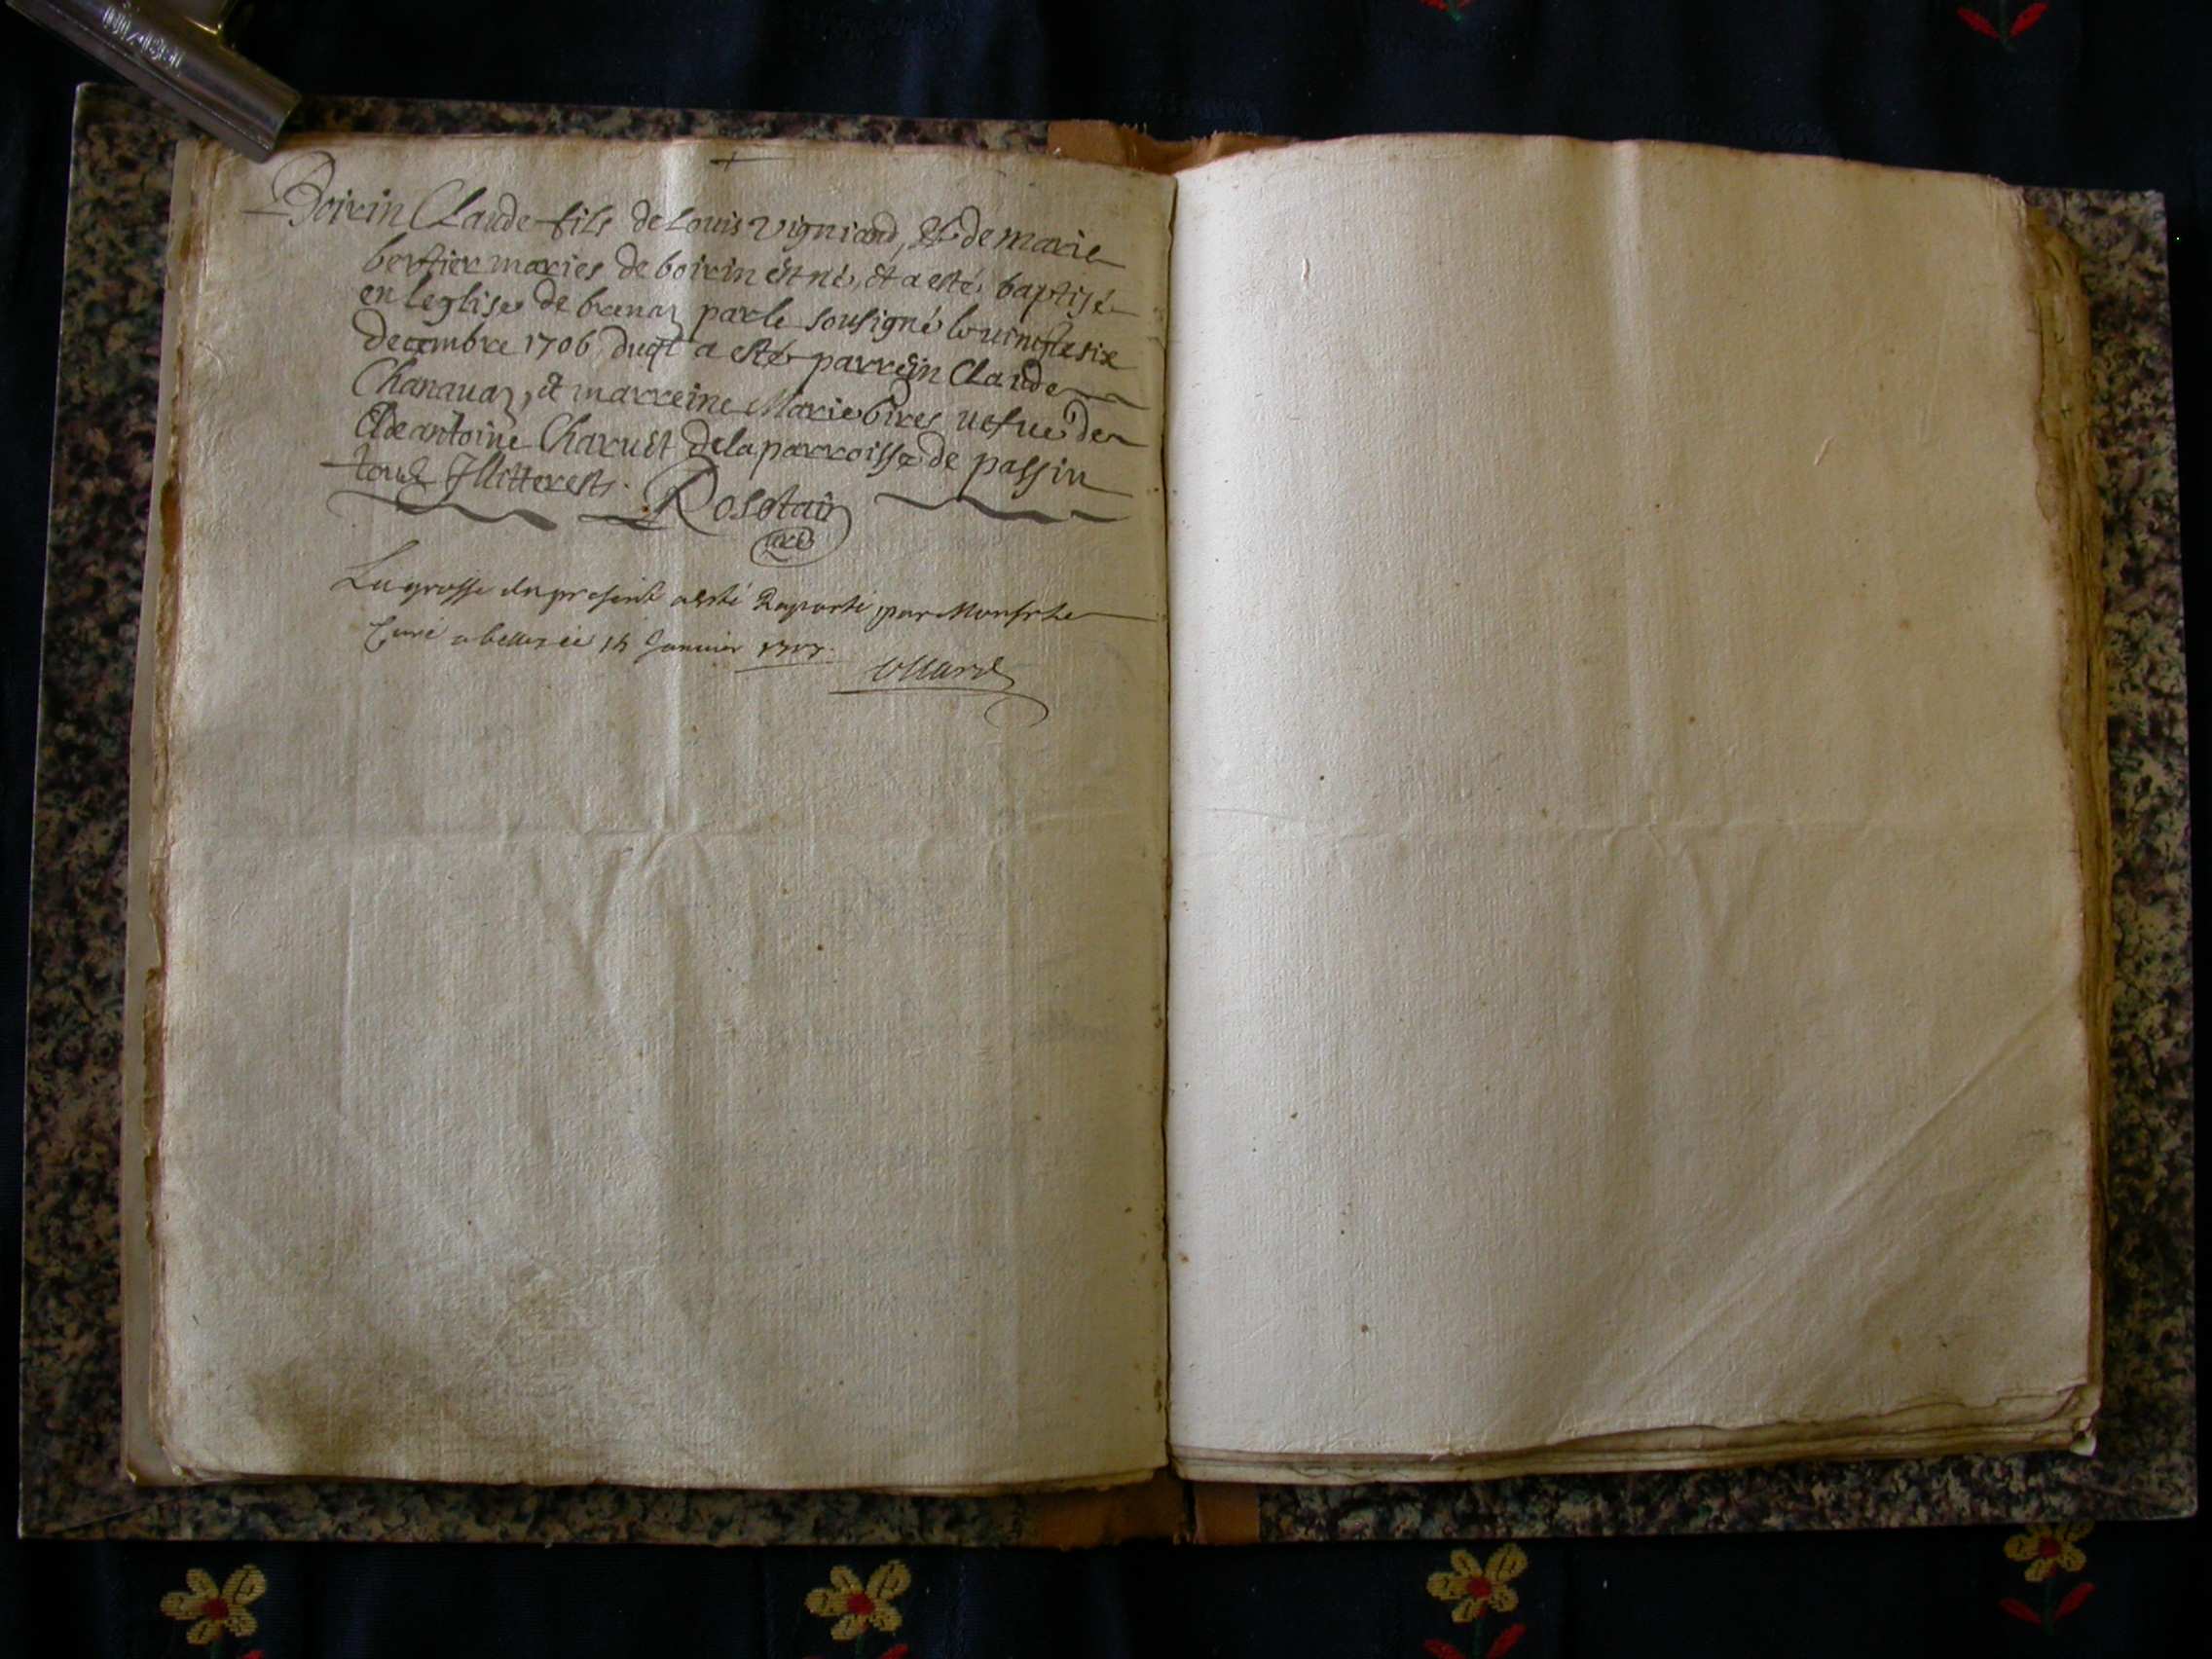 Boirin Claude fils de Louis Vigniand, et de marie
bertier maries de boirin est né, et a esté baptisé
en leglise de brenaz par le sousigné le vingtesix
decembre 1706 duqt a esté parrein Claude
Chanauaz, et marreine Marie bires uefue de
de antoine Charuet de la parroisse de passin
tous Illitterests. Rosetain
curé
La grosse du present a esté Raporté par Monsr le
Curé a belley ce 15 Januier 1707.